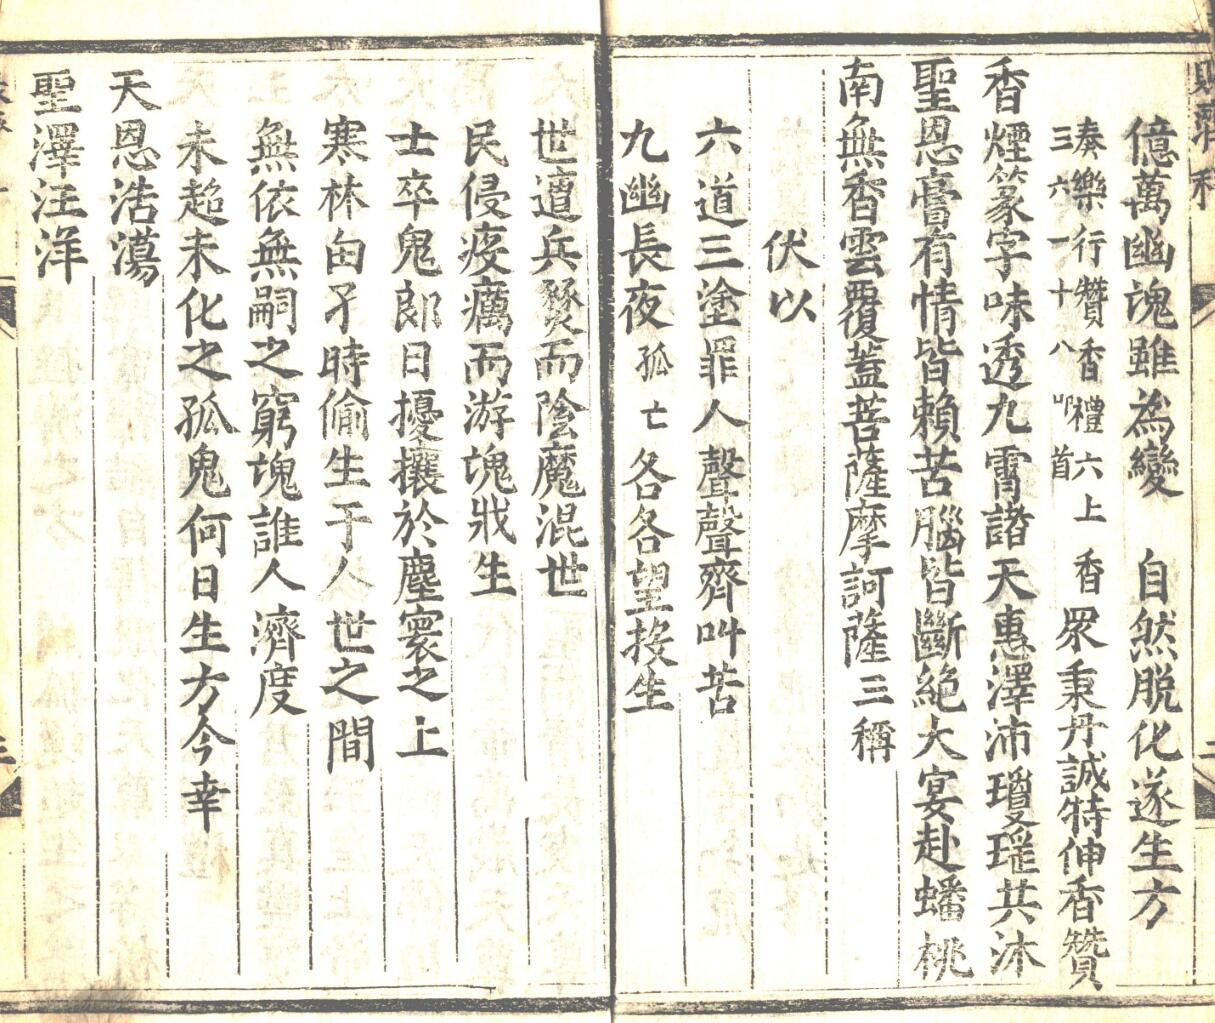 億萬幽魂雖為變　自然脫化遂生方
奏樂行贊香禮六上香眾秉丹誠特伸香贊
三六一十八叩首
香煙篆字味透九霄諸天惠澤沛瓊瑤共沐
聖恩膏有情皆賴苦腦皆斷絕大宴赴蟠桃
南無香雲覆蓋菩薩摩訶薩三稱
伏以
六道三塗罪人聲聲齊叫苦
九幽長夜孤亡各各望投生
世遭兵燹而陰魔混世
民侵疫癘而游魂戕生
士卒鬼郎日擾攘於塵寰之上
寒林由子時偷生于人世之間
無依無嗣之窮魂誰人濟度
未超未化之孤鬼何日生方今幸
天恩浩蕩
聖澤汪洋